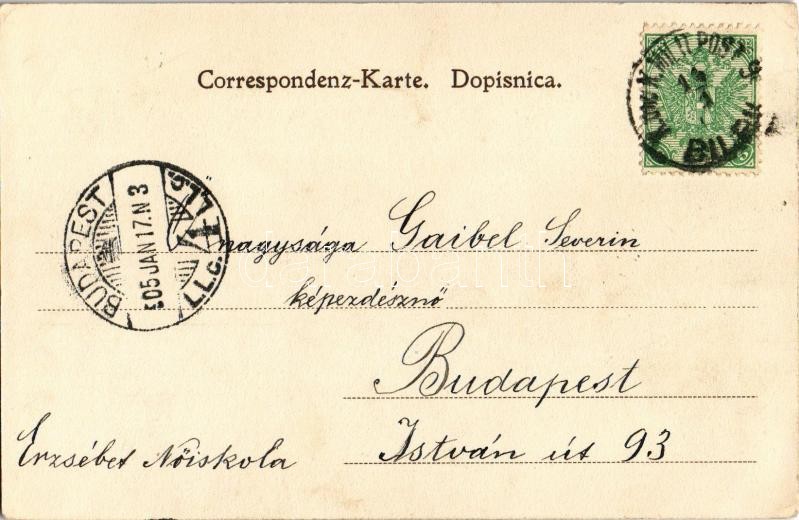 Correspondenz-Karte. Dopisnica.
K. UND K. MILIT. POST 9
BILEK
BUDAPEST
905 JAN 17. N 3
nagysága Gaibel Severin
képezdésznő
Budapest
István út 93
Erzsébet Nőiskola